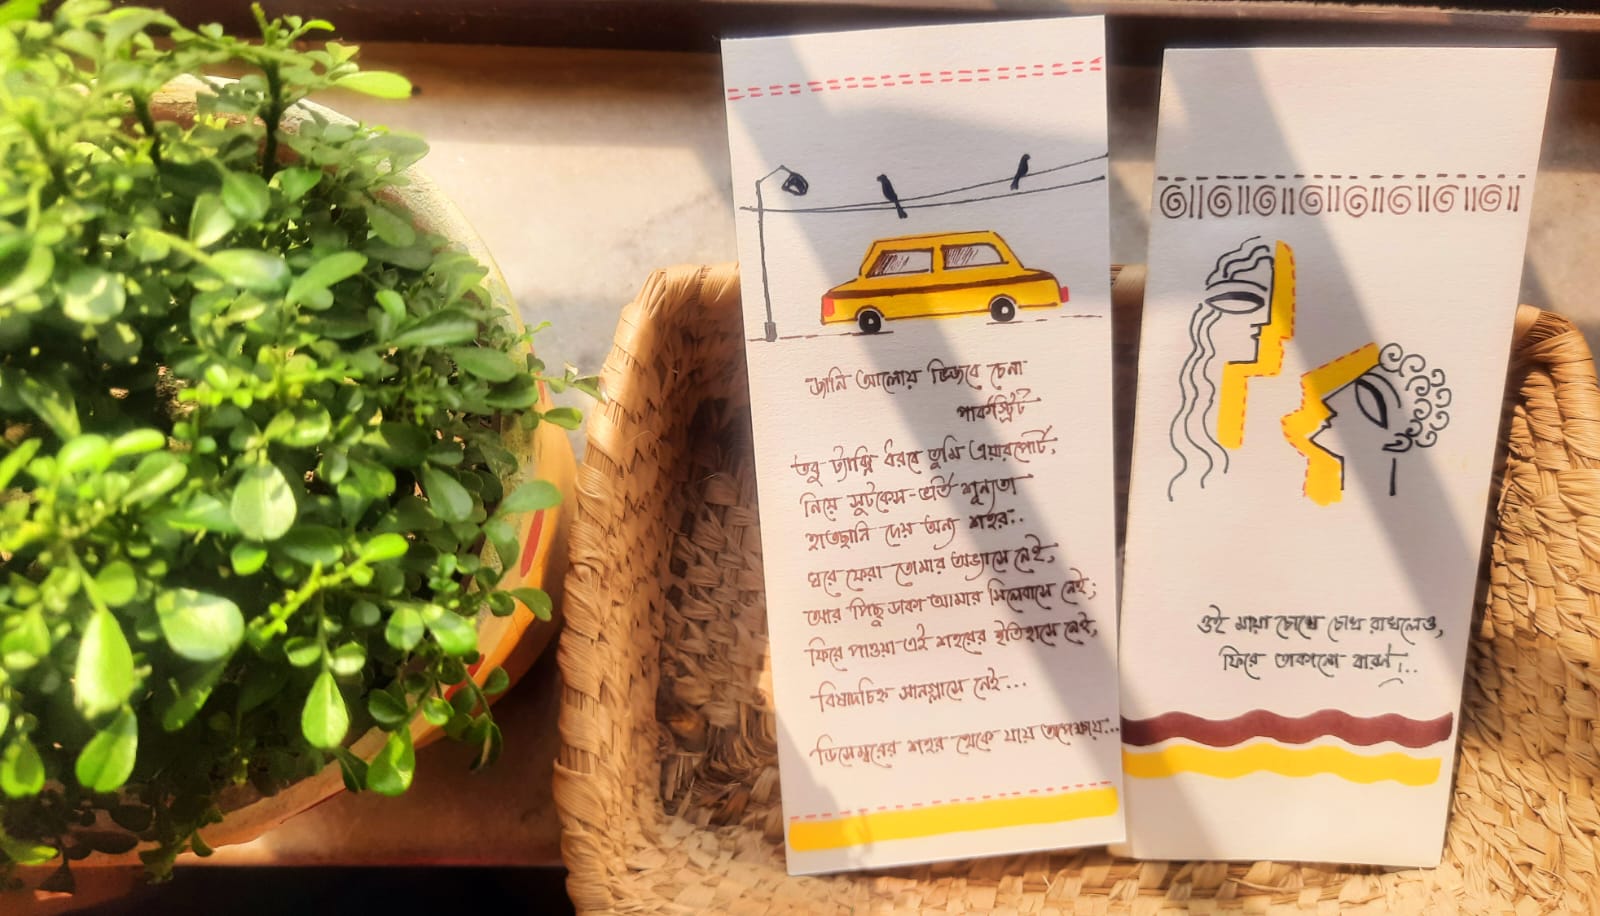 জানি আলোয় ভিজবে চেনা
পার্কস্ট্রিট
তবু ট্যাক্সি ধরবে তুমি এয়ারপোর্ট,
নিয়ে সুটকেস-ভর্তি শূন্যতা
হাতছানি দেয় অন্য শহর..
ঘরে ফেরা তোমার অভ্যাসে নেই,
আর পিছু ডাকা আমার সিলেবাসে নেই;
ফিরে পাওয়া এই শহরের ইতিহাসে নেই,
বিষাদচিহ্ন সানগ্লাসে নেই...
ডিসেম্বরের শহর থেকে যায় অপেক্ষায়...
ওই মায়া চোখে চোখ রাখলেও,
ফিরে তাকানো বারণ!..